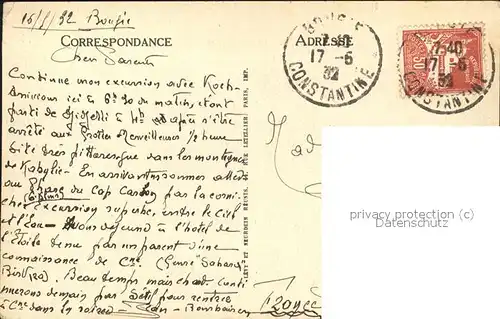 15/5/32 Bougie
CORRESPONDANCE
ADRESSE
Chers Parents
Continue mon excursion avec Koch-
Arrivons ici à 6h 30 du matin, étant
parti de Djidjelli à 4h après s'être
arrêté aux Grottes Merveilleuses 1/2 heure
très pittoresque dans les montagnes
de Kabylie - En arrivant sommes allés
au Phare du Cap Carbon par la corni-
che, excursion superbe, entre le ciel
et l'eau - Nous déjeuné à l'hôtel de
l'Étoile tenu par un parent d'une
connaissance de Cne. (genre Sahara
Beau temps mais chaud. Conti
nuerons demain par Sétif pour rentrer
à Cne dans la soirée
LÉVY ET NEURDEIN RÉUNIS, 44, RUE LETELLIER, PARIS, IMP.
BOUGIE
7-40
17 -5
32
CONSTANTINE
7-40
17 -5
32
CONSTANTINE
50
Mad
France
privacy protection copyright